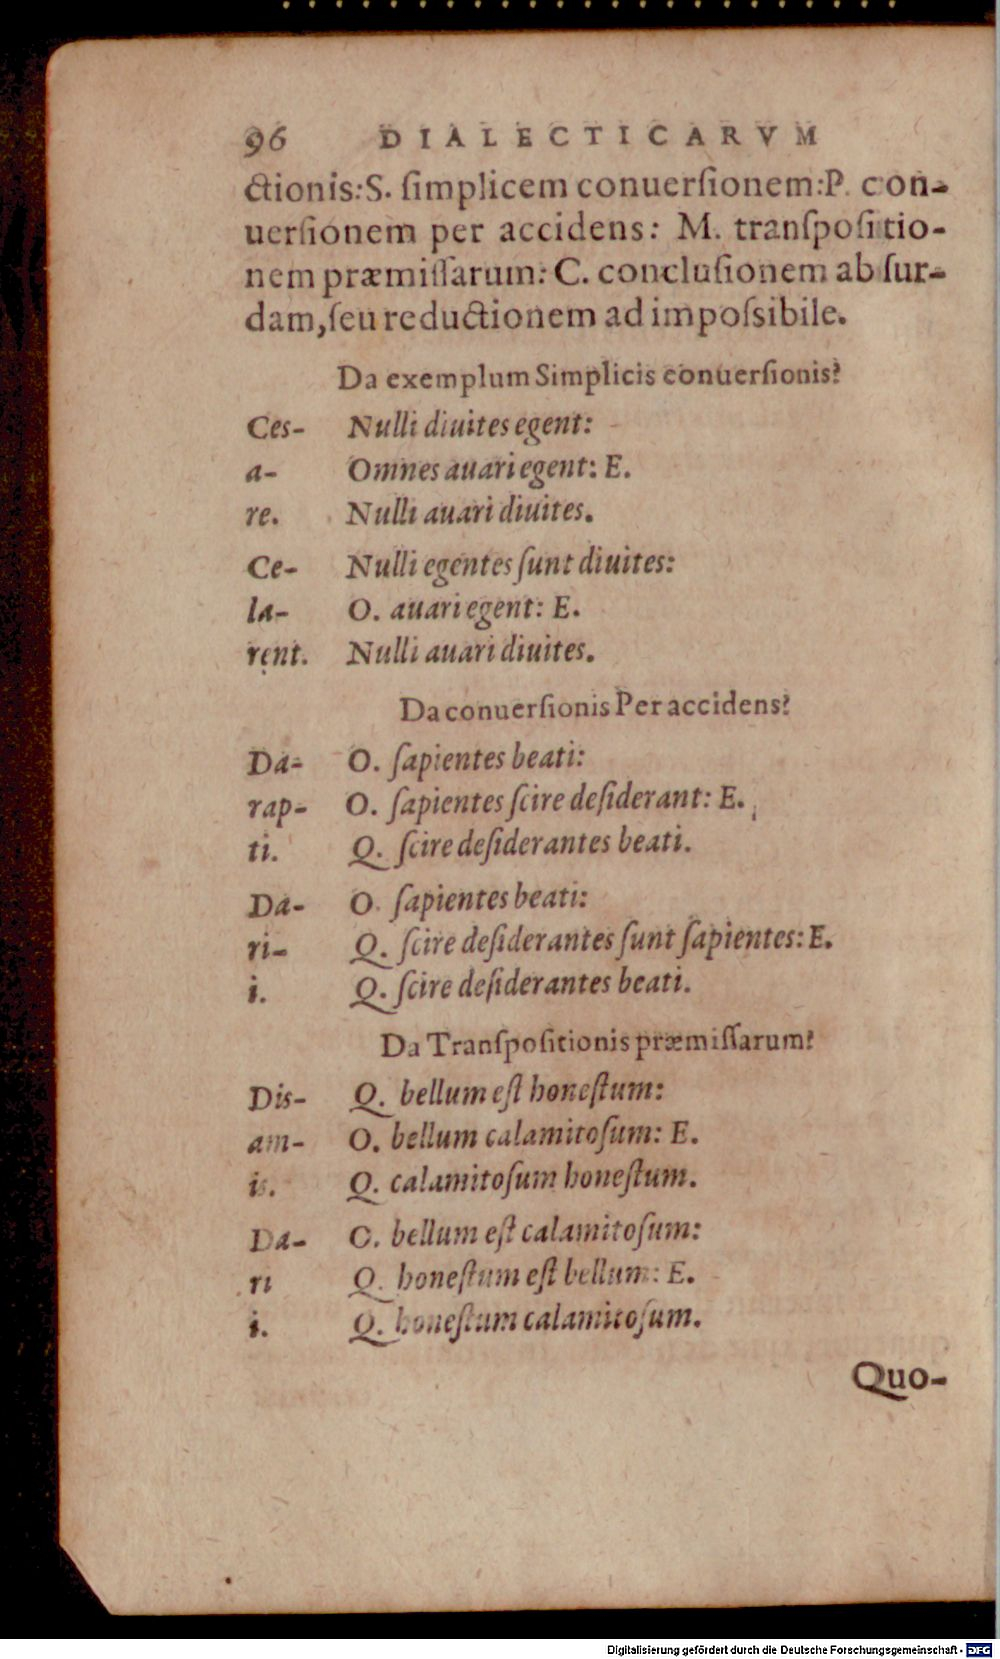 96 DIALECTICARVM
ctionis: S. ſimplicem conuerſionem: P. con-
uerſionem per accidens: M. tranſpoſitio-
nem præmiſſarum: C. concluſionem abſur-
dam, ſeu reductionem ad impoſsibile.
Da exemplum Simplicis conuerſionis?
Ces- Nulli diuites egent:
a- Omnes auari egent: E.
re. Nulli auari diuites.
Ce- Nulli egentes ſunt diuites:
la- O. auari egent: E.
rent. Nulli auari diuites.
Da conuerſionis Per accidens?
Da- O. ſapientes beati:
rap- O. ſapientes ſcire deſiderant: E.
ti. Q. ſcire deſiderantes beati.
Da- O. ſapientes beati:
ri- Q. ſcire deſiderantes ſunt ſapientes: E.
i. Q. ſcire deſiderantes beati.
Da Tranſpoſitionis præmiſſarum?
Dis- Q. bellum eſt honeſtum:
am- O. bellum calamitoſum: E.
is. Q. calamitoſum honeſtum.
Da- O. bellum eſt calamitoſum:
ri Q. honeſtum eſt bellum: E.
i. Q. honeſtum calamitoſum.
Quo-
Digitalisierung gefördert durch die Deutsche Forschungsgemeinschaft - DFG